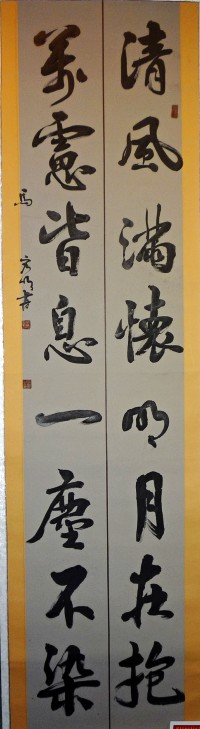 清風滿懷明月在抱
萬慮皆息一塵不染
馬